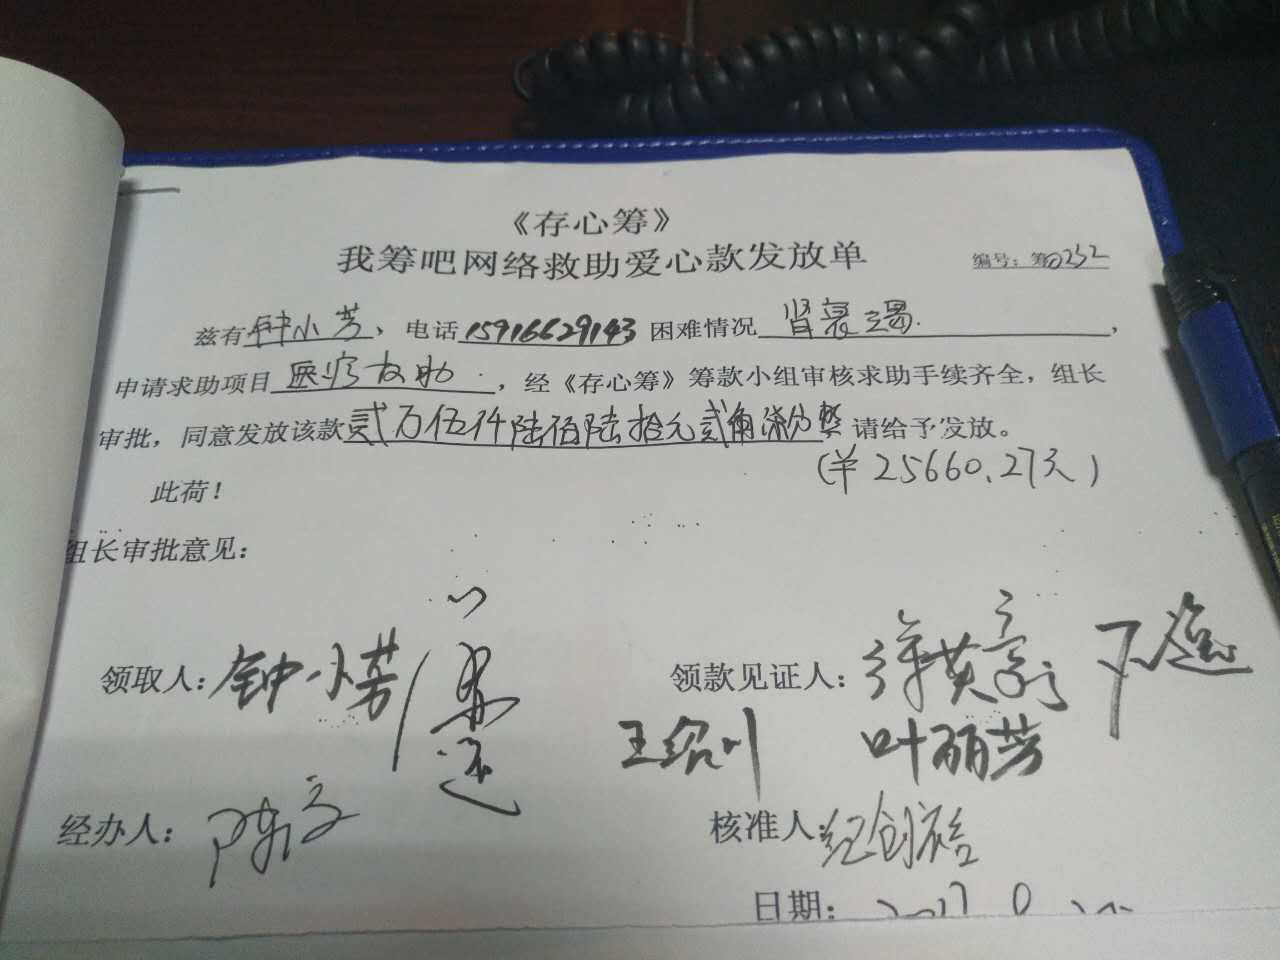 《存心筹》
我筹吧网络救助爱心款发放单
编号：筹0232
兹有钟小芳，电话15916629143困难情况肾衰竭，
申请求助项目医疗救助，经《存心筹》筹款小组审核求助手续齐全，组长
审批，同意发放该款贰万伍仟陆佰陆拾元贰角柒分整请给予发放。
(¥25660.27元)
此荷！
组长审批意见：
领取人：钟小芳
领款见证人：
王绍川 叶丽芳
经办人：
核准人：
日期：